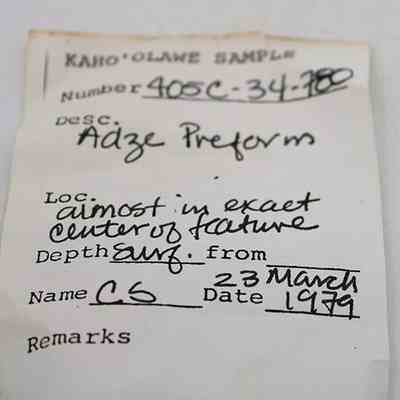 KAHO'OLAWE SAMPLE
Number 405C-34-780
Desc.
Adze Preform
Loc.
almost in exact
center of feature
Depth Surf. from
23 March
Name CS Date 1979
Remarks